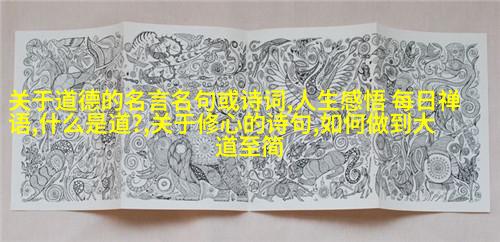 关于道德的名言名句或诗词,人生感悟 每日禅
语,什么是道?,关于修心的诗句,如何做到大
道至简